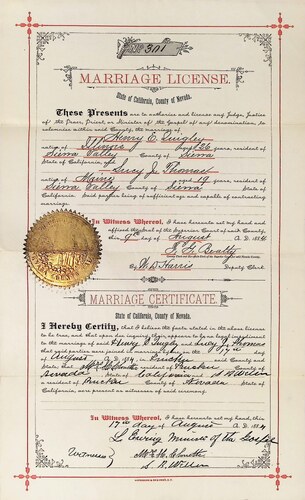 No. 301
MARRIAGE LICENSE.
State of California, County of Nevada.
These Presents are to authorize and license any Judge, Justice
of the Peace, Priest or Minister of the Gospel of any denomination, to
solemnize within said County, the marriage of
Henry C. Quigley
native of Illinois aged 26 years, resident of
Sierra Valley County of Sierra
State of California, and Lucy J. Thomas
native of Maine aged 19 years, resident of
Sierra Valley County of Sierra
State of California. Said parties being of sufficient age and capable of contracting
marriage.
In Witness Whereof, I have hereunto set my hand and
affixed the Seal of the Superior Court of said County,
this 9th day of August A. D. 1884
E. G. Beatty
By W. D. Harris Deputy Clerk.
MARRIAGE CERTIFICATE.
State of California, County of Nevada.
I Hereby Certify, that I believe the facts stated in the above license
to be true, and that upon due inquiry there appears to be no legal impediment
to the marriage of said Henry C. Quigley and Lucy J. Thomas
that said parties were joined in marriage by me on the 17th day of
August A. D. 1884, in Truckee
State; that resident of Truckee County of
Nevada State of California and
a resident of Truckee County of Nevada State of
California, were present as witnesses of said ceremony.
In Witness Whereof, I have hereunto set my hand, this
17th day of August A. D. 1884
L. Ewing Minister of the Gospel
Witnesses